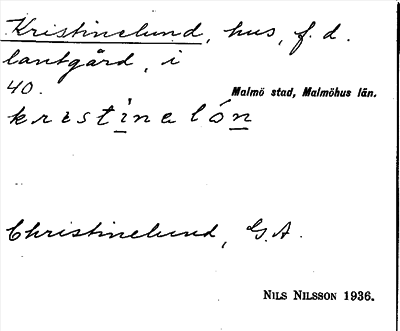 Kristinelund, hus, f. d.
lantgård, i
40.
Malmö stad, Malmöhus län.
kristinalón
Christinelund, G. A.
Nils Nilsson 1936.